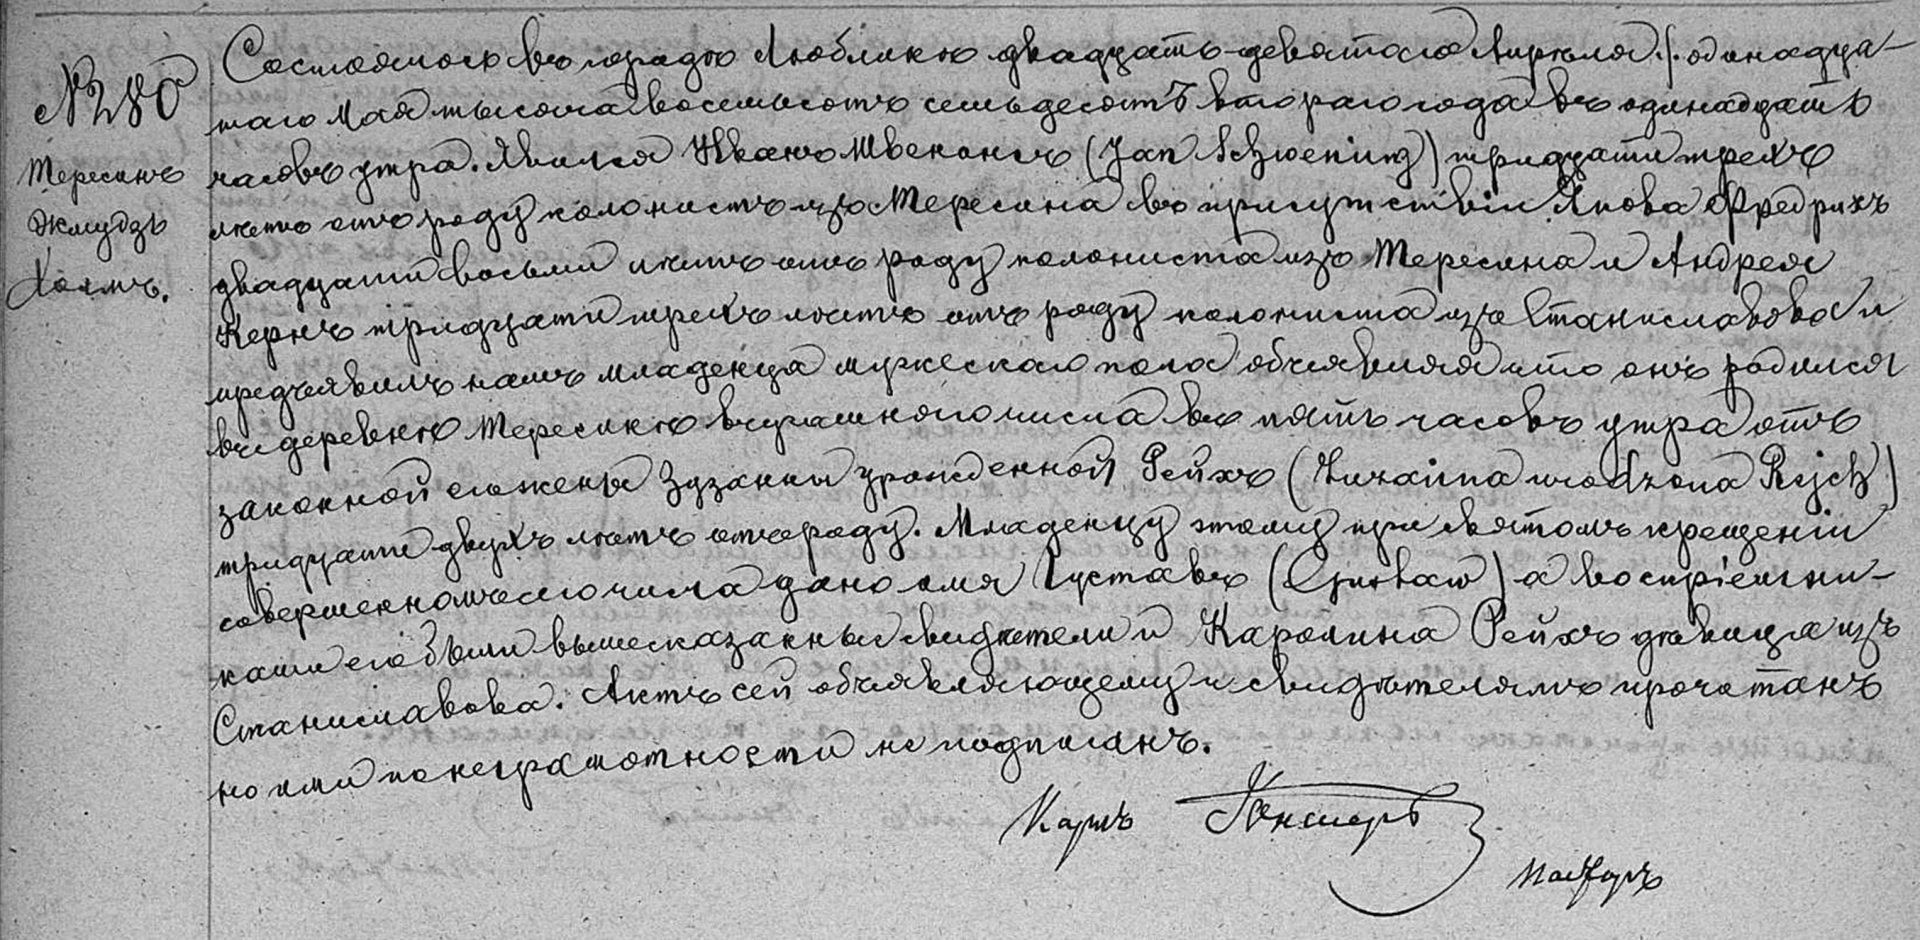 № 280
Тересинъ
Жмудзь
Холмъ.
Состоялось въ городѣ Люблинѣ двадцать-девятаго Апрѣля /: одинадца-
таго Мая тысяча восемьсотъ семьдесятъ втораго года въ одинадцать
часовъ утра. Явился Иванъ Швенингъ (Jan Schwening) тридцати трехъ
лѣтъ отъ роду колонистъ изъ Тересина въ присутствіи Якова Фредрихъ
двадцати восьми лѣтъ отъ роду колониста изъ Тересина и Андрея
Кернъ тридцати трехъ лѣтъ отъ роду колониста изъ Станиславова и
предъявилъ намъ младенца мужескаго пола объявляя что онъ родился
въ деревнѣ Тересинѣ вчерашняго числа въ пять часовъ утра отъ
законной его жены Зузанны урожденной Рейхъ (Zuzanna urodzona Rejch)
тридцати двухъ лѣтъ отъ роду. Младенцу этому при святомъ крещеніи
совершенномъ сего числа дано имя Густавъ (Gustaw) а воспріемни-
ками его были вышесказанные свидѣтели и Каролина Рейхъ дѣвица изъ
Станиславова. Актъ сей объявляющему и свидѣтелямъ прочитанъ
но ими по неграмотности не подписанъ.
Карлъ
Пасторъ